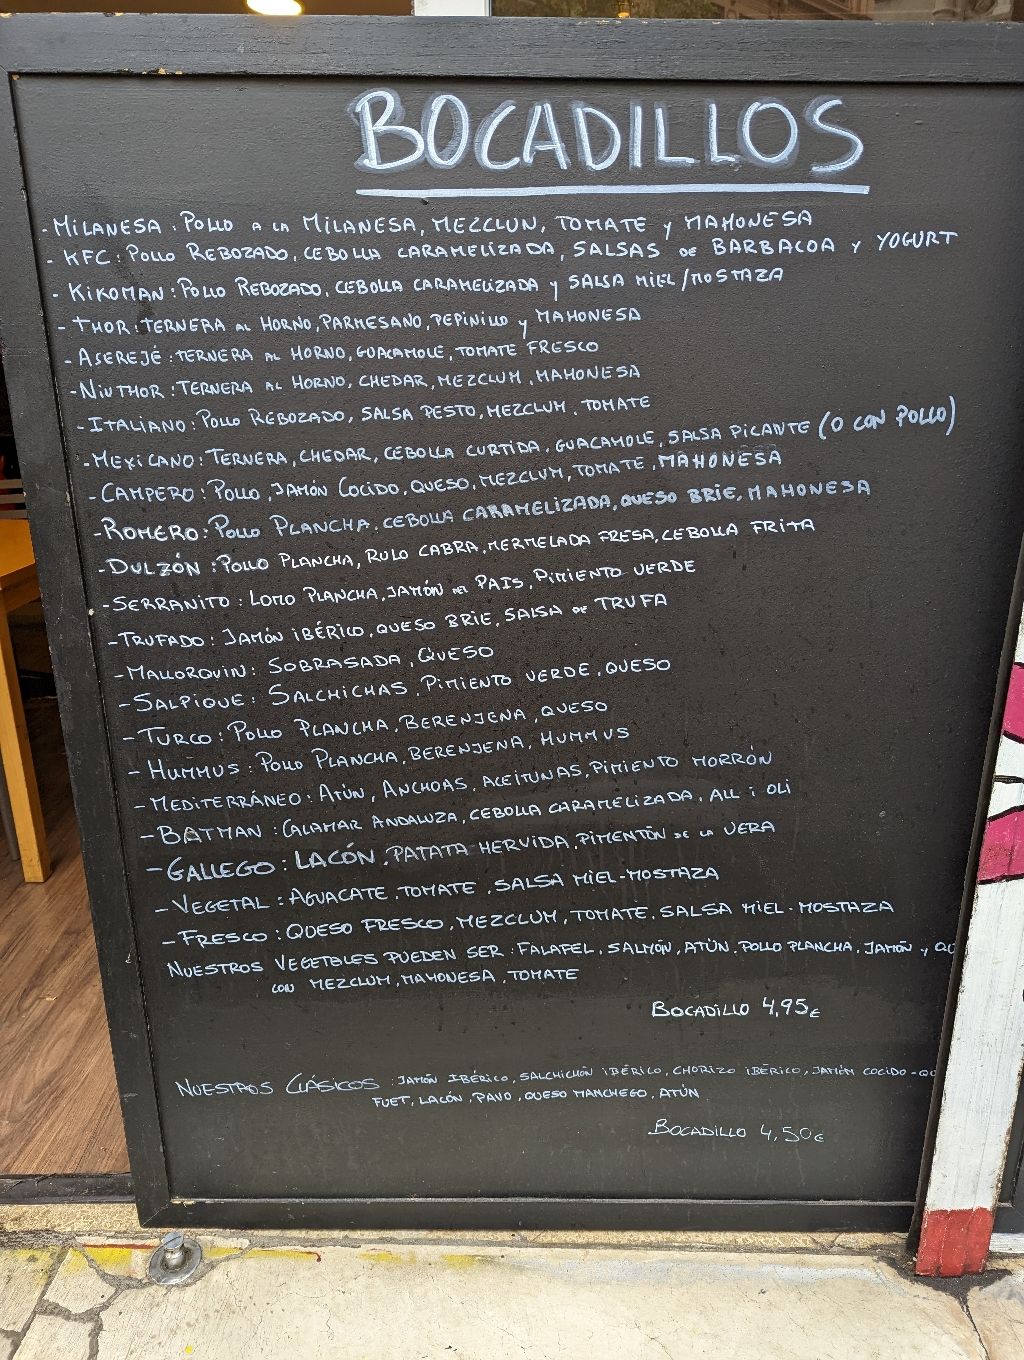 BOCADILLOS
- MILANESA: POLLO A LA MILANESA, MEZCLUN, TOMATE Y MAHONESA
- KFC: POLLO REBOZADO, CEBOLLA CARAMELIZADA, SALSAS DE BARBACOA Y YOGURT
- KIKOMAN: POLLO REBOZADO, CEBOLLA CARAMELIZADA Y SALSA MIEL/MOSTAZA
- THOR: TERNERA AL HORNO, PARMESANO, PEPINILLO Y MAHONESA
- ASEREJÉ: TERNERA AL HORNO, GUACAMOLE, TOMATE FRESCO
- NIUTHOR: TERNERA AL HORNO, CHEDAR, MEZCLUM, MAHONESA
- ITALIANO: POLLO REBOZADO, SALSA PESTO, MEZCLUM, TOMATE
- MEXICANO: TERNERA, CHEDAR, CEBOLLA CURTIDA, GUACAMOLE, SALSA PICANTE (O CON POLLO)
- CAMPERO: POLLO, JAMÓN COCIDO, QUESO, MEZCLUM, TOMATE, MAHONESA
- ROMERO: POLLO PLANCHA, CEBOLLA CARAMELIZADA, QUESO BRIE, MAHONESA
- DULZÓN: POLLO PLANCHA, RULO CABRA, MERMELADA FRESA, CEBOLLA FRITA
- SERRANITO: LOMO PLANCHA, JAMÓN DEL PAIS, PIMIENTO VERDE
- TRUFADO: JAMÓN IBÉRICO, QUESO BRIE, SALSA DE TRUFA
- MALLORQUIN: SOBRASADA, QUESO
- SALPIQUE: SALCHICHAS, PIMIENTO VERDE, QUESO
- TURCO: POLLO PLANCHA, BERENJENA, QUESO
- HUMMUS: POLLO PLANCHA, BERENJENA, HUMMUS
- MEDITERRÁNEO: ATÚN, ANCHOAS, ACEITUNAS, PIMIENTO MORRÓN
- BATMAN: CALAMAR ANDALUZA, CEBOLLA CARAMELIZADA, ALL i OLI
- GALLEGO: LACÓN, PATATA HERVIDA, PIMENTÓN DE LA VERA
- VEGETAL: AGUACATE, TOMATE, SALSA MIEL-MOSTAZA
- FRESCO: QUESO FRESCO, MEZCLUM, TOMATE, SALSA MIEL-MOSTAZA
NUESTROS VEGETBLES PUEDEN SER: FALAFEL, SALMÓN, ATÚN, POLLO PLANCHA, JAMÓN Y
CON MEZCLUM, MAHONESA, TOMATE
BOCADILLO 4,95€
NUESTROS CLÁSICOS: JAMÓN IBÉRICO, SALCHICHÓN IBÉRICO, CHORIZO IBÉRICO, JAMÓN COCIDO-
FUET, LACÓN, PAVO, QUESO MANCHEGO, ATÚN
BOCADILLO 4,50€